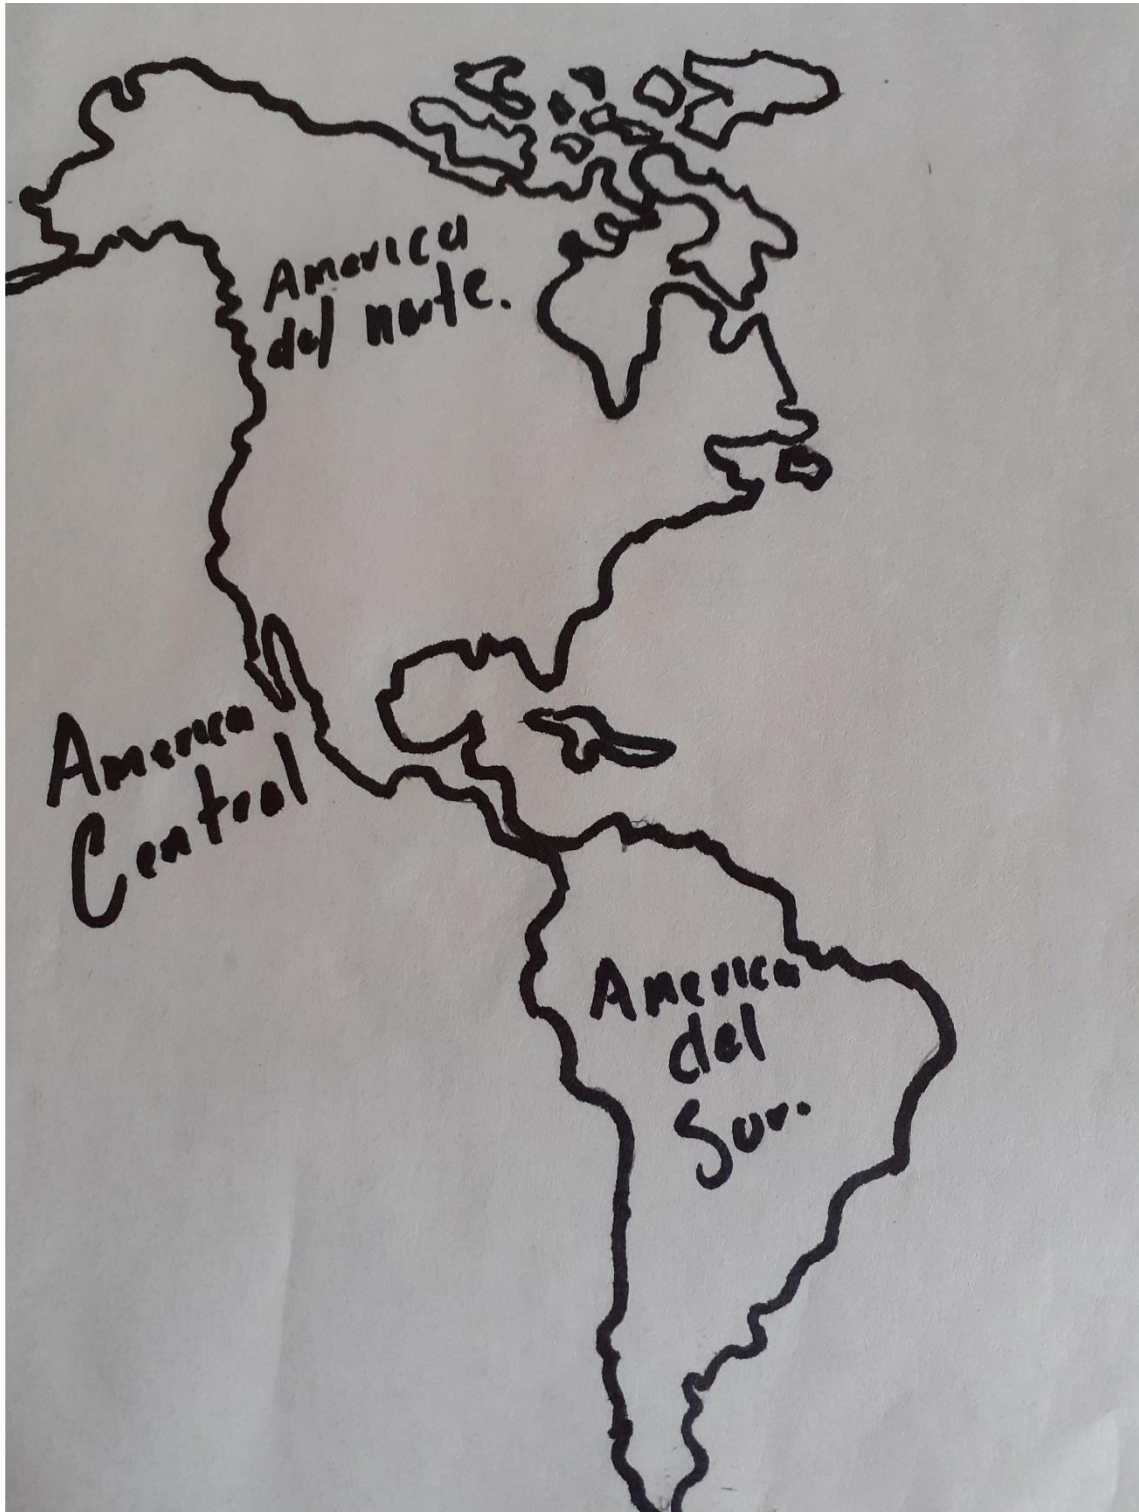 America
del norte.
America
Central
America
del
Sur.